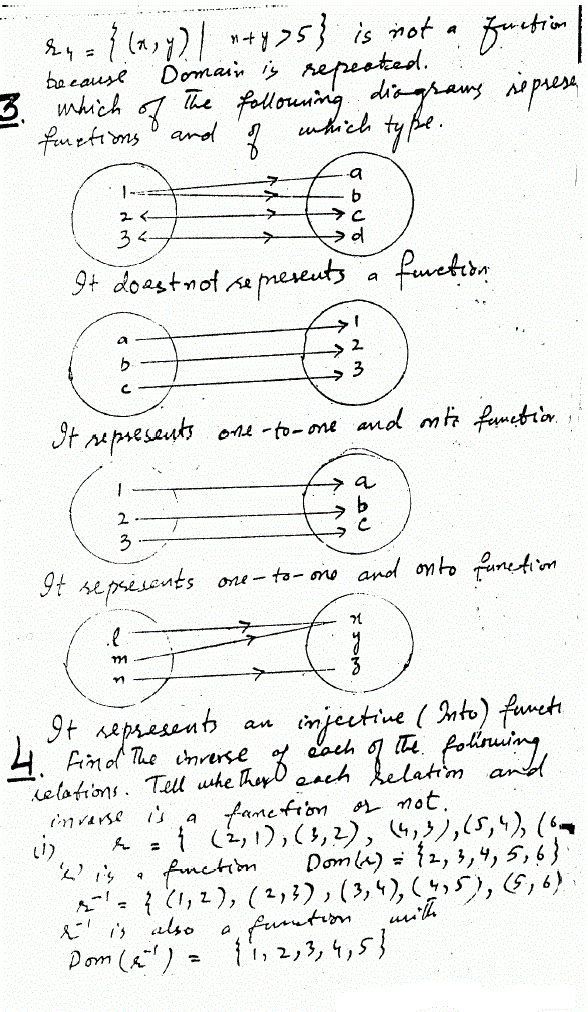 r₄ = { (x,y) | x+y >5} is not a function
because Domain is repeated.
3. which of the following diagrams represe
functions and of which type.
1 a
b
2 c
3 d
It doestnot represents a function
a 1
b 2
c 3
It represents one-to-one and onto function
1 a
2 b
3 c
It represents one-to-one and onto function
l x
m y
n z
It represents an injective (Into) functi
4. Find the inverse of each of the following
relations. Tell whether each relation and
inverse is a function or not.
(i) r = { (2,1),(3,2), (4,3),(5,4), (6
'r' is a function Dom(r) = {2,3,4,5,6}
r⁻¹ = { (1,2), (2,3), (3,4), (4,5), (5,6)
r⁻¹ is also a function with
Dom (r⁻¹) = {1,2,3,4,5}